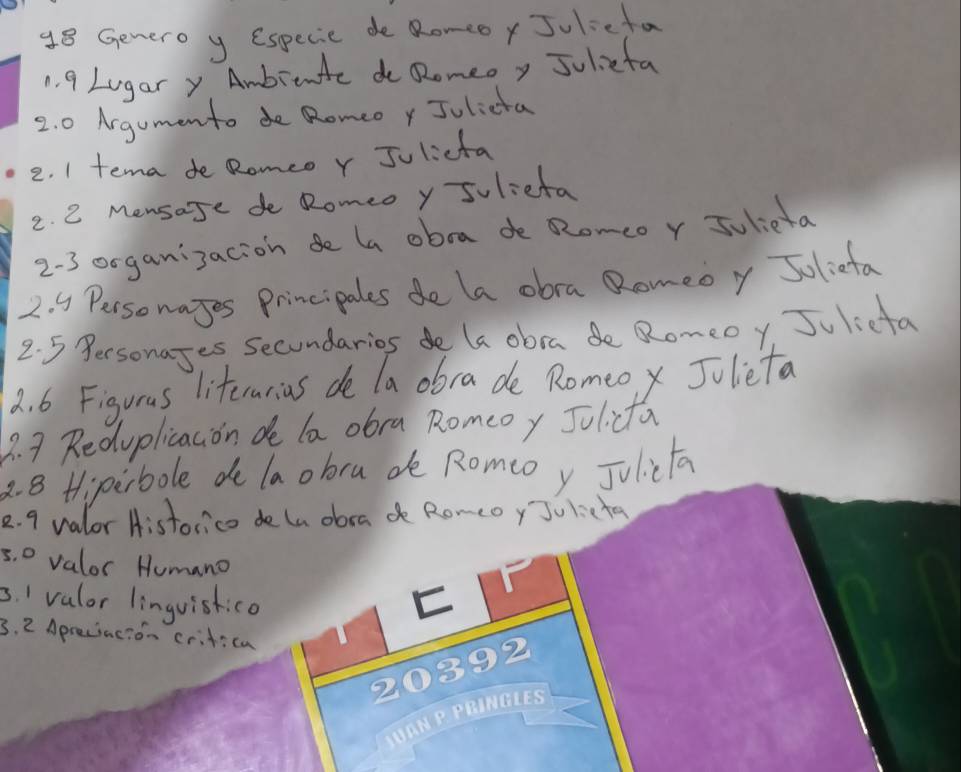 98 Genero y Especie de Romeo y Julieta
1.9 Lugar y Ambiente de Romeo y Julieta
2.0 Argumento de Romeo y Julieta
2.1 tema de Romeo y Julieta
2.2 MensaJe de Romeo y Julieta
2-3 organización de la obra de Romeo y Julieta
2.4 PersonaJes principales de la obra Romeo y Julieta
2.5 PersonaJes secundarios de la obra de Romeo y Julieta
2.6 Figuras literarias de la obra de Romeo y Julieta
2.7 Reduplicación de la obra Romeo y Julieta
2.8 Hipérbole de la obra de Romeo y Julieta
2.9 valor Historico de la obra de Romeo y Julieta
3.0 valor Humano
3.1 valor linguistico
3.2 Apreciación critica
E P
20392
JUAN P PRINGLES